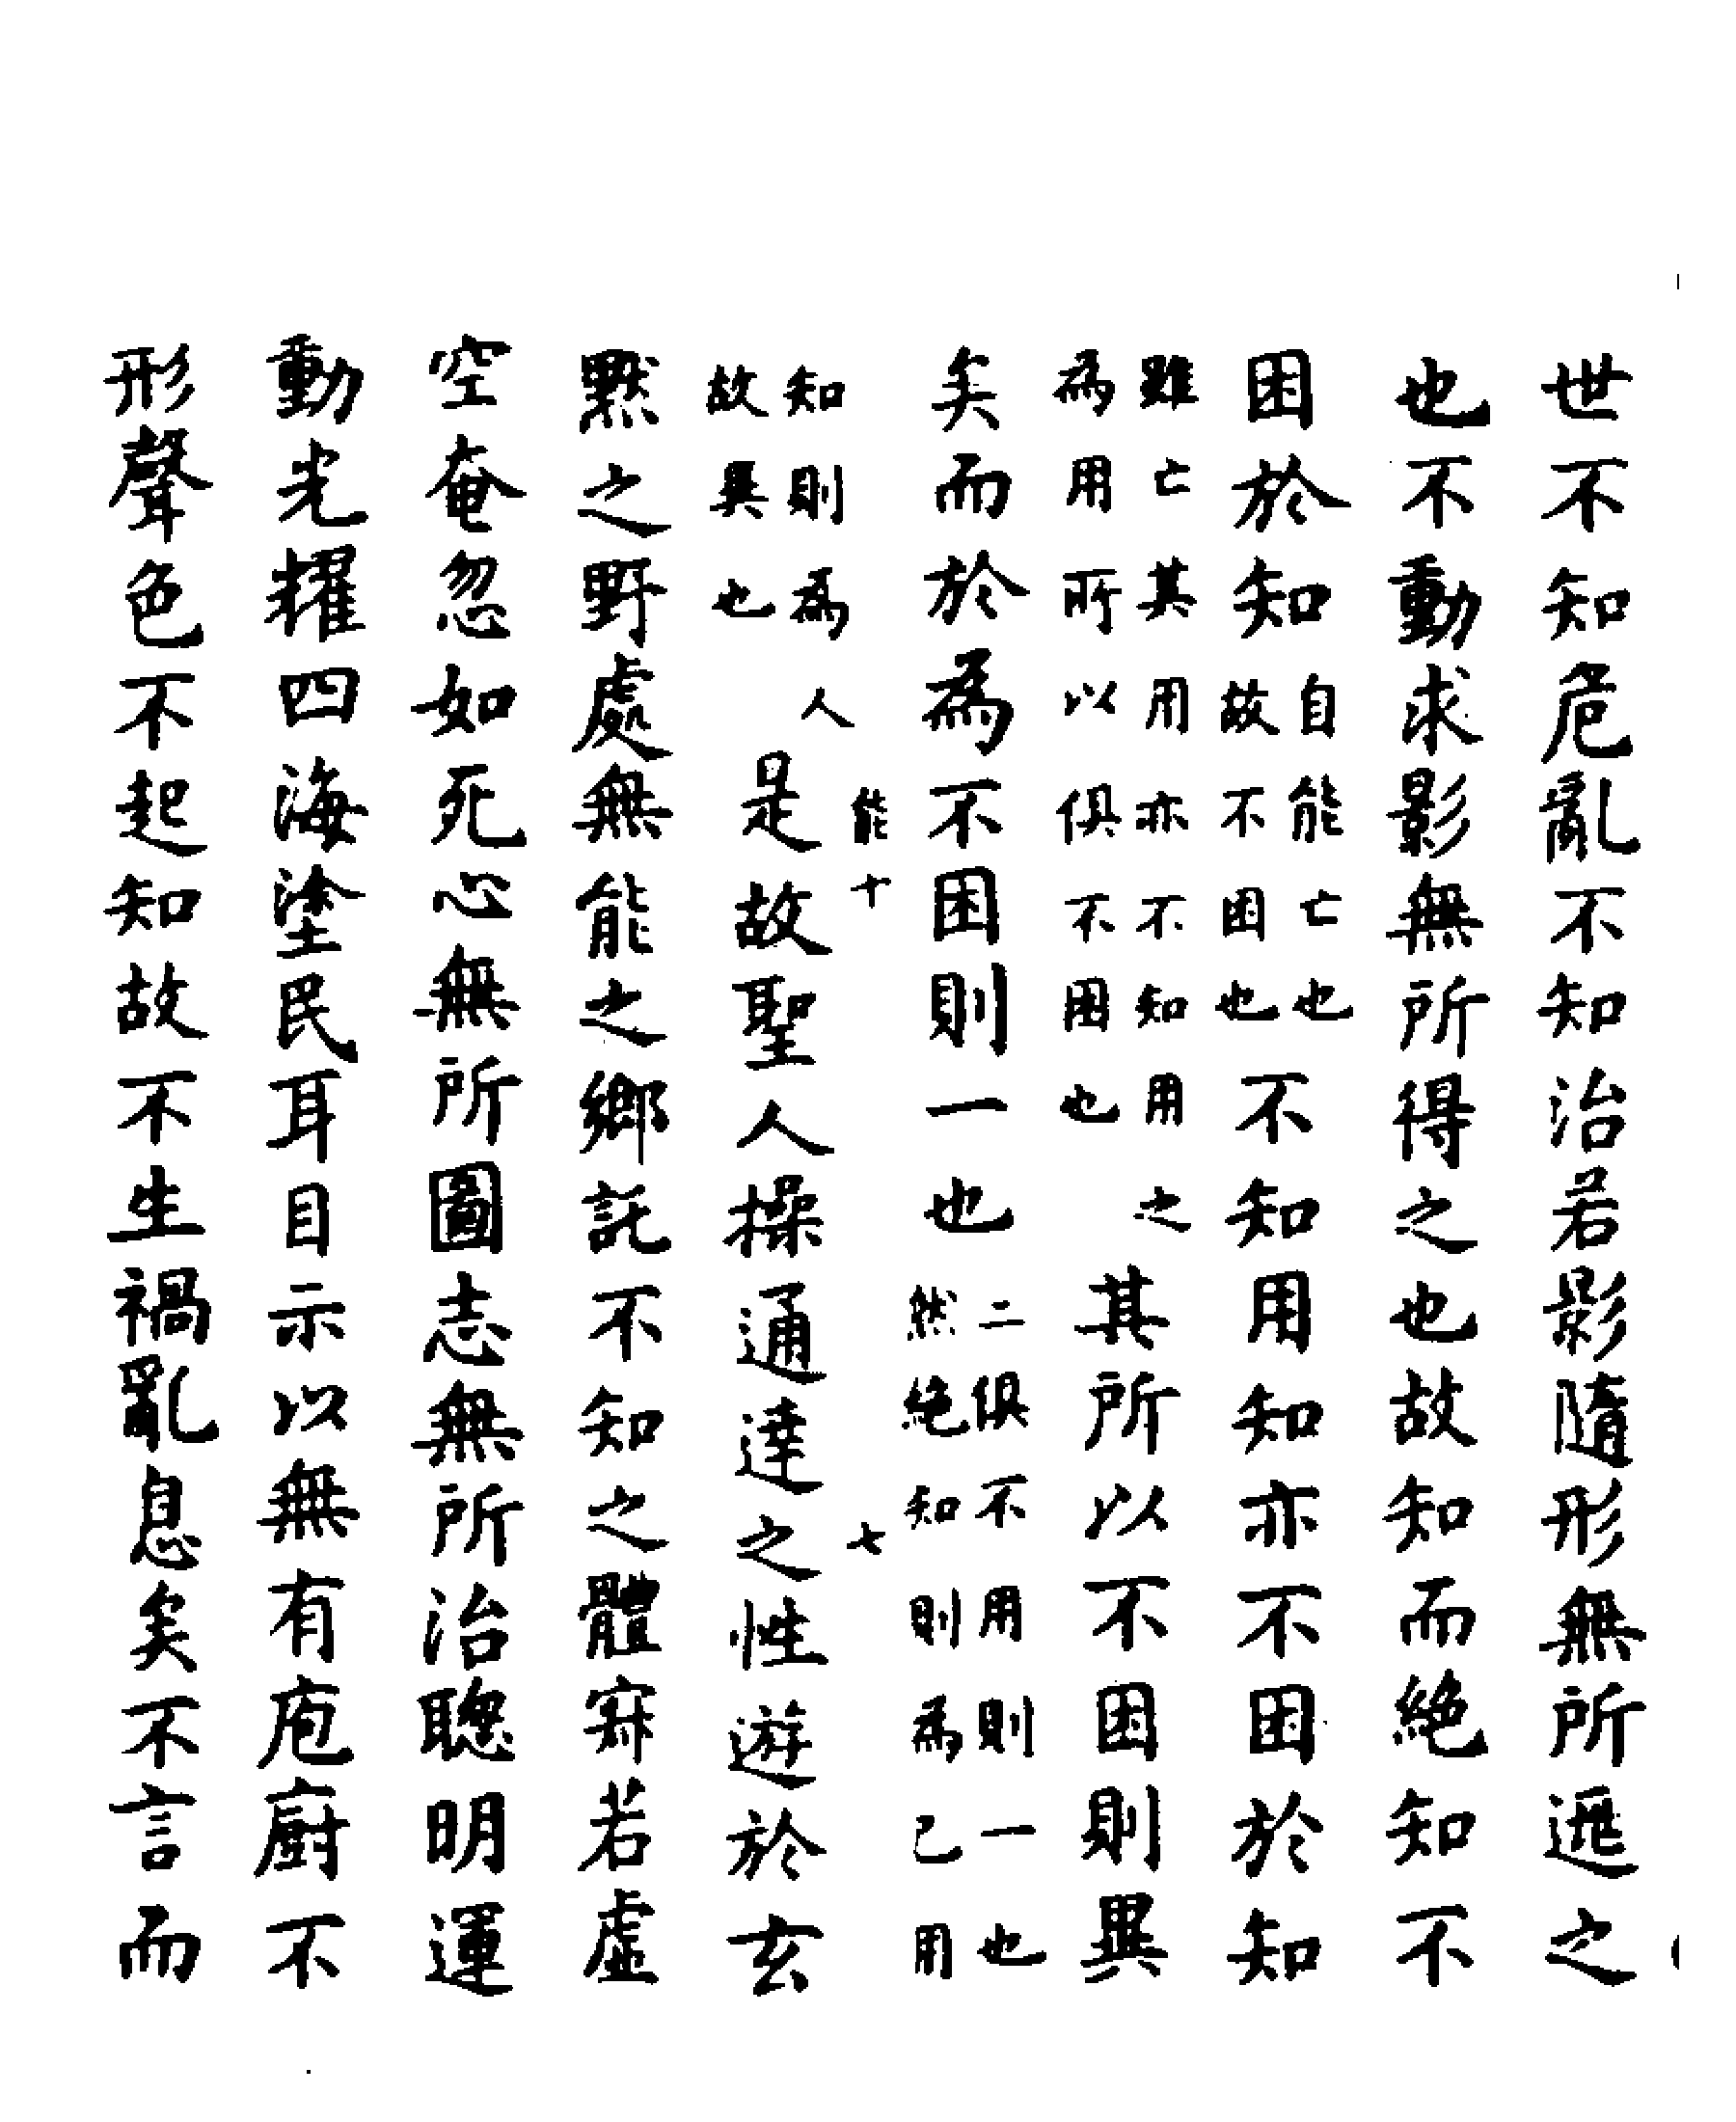 世不知危亂不知治若影隨形無所遯之
也不動求影無所得之也故知而絕知不
困於知自能亡也故不困也不知用知亦不困於知
雖亡其用亦不知用之為用所以俱不困也其所以不困則異
矣而於為不困則一也二俱不用則一也然絕知則為己用
知則為人故異也是故聖人操通達之性遊於玄
能十七
默之野處無能之鄉託不知之體寂若虛
空奄忽如死心無所圖志無所治聰明運
動光耀四海塗民耳目示以無有庖廚不
形聲色不起知故不生禍亂息矣不言而